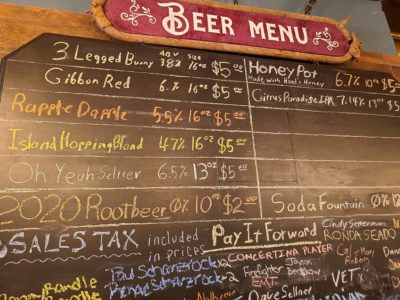 BEER MENU
ABV SIZE
3 Legged Bunny 3.8% 16oz $5.00
Gibbon Red 6.% 16oz $5.00
Rapple Dapple 5.5% 16oz $5.00
Island Hopping Blond 4.7% 16oz $5.00
Oh Yeah Seltzer 6.5% 13oz $5.00
2020 Rootbeer 0% 10oz $2.00
SALES TAX included in prices
Honey Pot 6.7% 10oz $5
Made with Honey
Citrus Paradise IPA 7.14% 13oz $5
Soda Fountain 0% 12
Pay It Forward
CONCERTINA PLAYER
Firefighter
EMT
Jason
VET
Dave Sellner
Cindy Setterman
RONDA SEADO
Paul Schanzrock
Randle